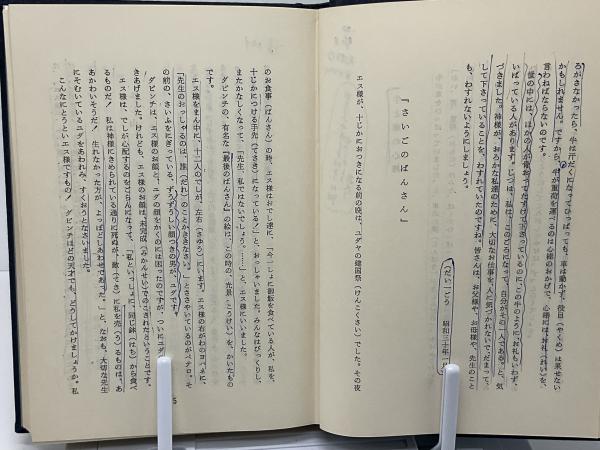 ろがさなかったら、牛は汗だくになってひっぱっても、車は動かず、役目（やくめ）は果せない
かもしれません。ですから、牛が重荷を運べるのは心棒のおかげで、心棒には、お礼（れい）を、
言わねばならないのです。
世の中には、ほかの人が骨おってたすけて下さっているのに、この牛のように、お礼もいわず、
いばっている人があります。じつは、私は、このごろになって、自分がその一人であると、気
づきました。神様が、おろかな私達のために、大切なお仕事を、人に気づかれないでだまって、
して下さっていることを、わすれていたのですね。皆さんは、お父様や、お母様や、先生のこと
も、わすれないようにしましょう。
（だい一ごう 昭和三十年一月）
『さいごのばんさん』
エス様が、十じかにおつきになる前の晩は、ユダヤの建国祭（けんこくさい）でした。その夜
のお食事（ばんさん）の時、エス様はおでし達に、「今一しょに御飯を食べている人が、私を、
十じかにつける手先（てさき）になっている！」と、おっしゃいました。みんなはびっくりし、
またかなしくなって、「先生、私ではないでしょう。……」と、エス様にいいました。
ダビンチの、有名な「最後のばんさん」の絵は、この時の、光景（こうけい）を、かいたもの
です。
エス様をまん中に、十二人のでしが、左右（さゆう）にいます。エス様の右がわのヨハネに、
「先生のおっしゃるのは、誰（だれ）のことかききなさい。」とささやいているのがペテロ。そ
の前の、さいふをにぎっている、ずうずうしい顔つきの男が、ユダです。
ダビンチは、エス様のお顔と、ユダの顔をかくのには困ったのですが、ついにユダ
きあげました。けれども、エス様のお顔は、未完成（みかんせい）でのこされたということです。
エス様は、でしが心配するのをごらんになって、「私といっしょに、同じ鉢（はち）から食べ
るものだ！　私は神様にきめられている通りに死ぬが、敵（てき）に私を売（う）るものは、あ
あかわいそうだ！　生れなかった方が、よっぽどしあわせであった。」と、なおも、大切な先生
にそむいているユダをあわれみ、すくおうとなさいました。
こんなにとうといエス様ですもの！　ダビンチほどの天才でも、どうしてかけましょうか。私
5